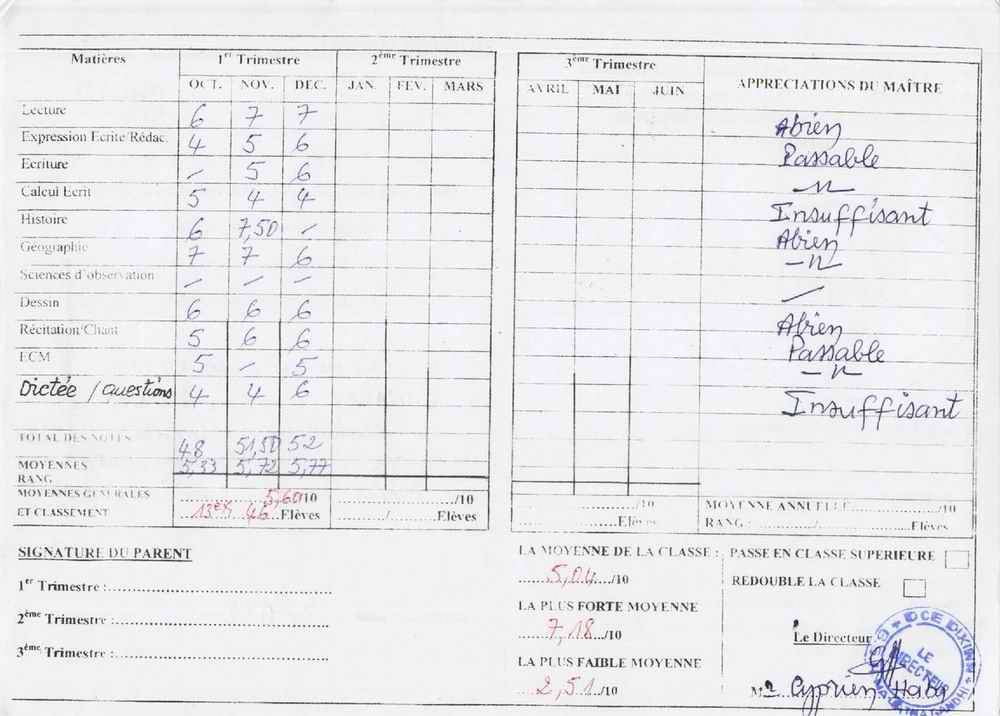 Matières 1er Trimestre 2ème Trimestre 3ème Trimestre APPRECIATIONS DU MAÎTRE
OCT. NOV. DEC. JAN. FEV. MARS AVRIL MAI JUIN
Lecture 6 7 7 Abien
Expression Ecrite/Rédac. 4 5 6 Passable
Ecriture - 5 6 -n-
Calcul Ecrit 5 4 4 Insuffisant
Histoire 6 7,50 - Abien
Géographie 7 7 6 -n-
Sciences d'observation - - - -
Dessin 6 6 6 Abien
Récitation/Chant 5 6 6 Passable
ECM 5 - 5 -n-
Dictée / questions 4 4 6 Insuffisant
TOTAL DES NOTES 48 51,50 52
MOYENNES 5,33 5,72 5,77
RANG
MOYENNES GENERALES 5,60/10 /10 /10 MOYENNE ANNUELLE /10
ET CLASSEMENT 13ex 46 Elèves /Elèves Elèves RANG : / Elèves
SIGNATURE DU PARENT
1er Trimestre :
2ème Trimestre :
3ème Trimestre :
LA MOYENNE DE LA CLASSE :
5,04/10
LA PLUS FORTE MOYENNE
7,18/10
LA PLUS FAIBLE MOYENNE
2,51/10
PASSE EN CLASSE SUPERIEURE
REDOUBLE LA CLASSE
Le Directeur
DCE DIXINN
LE DIRECTEUR
Mr Cyprien Haba